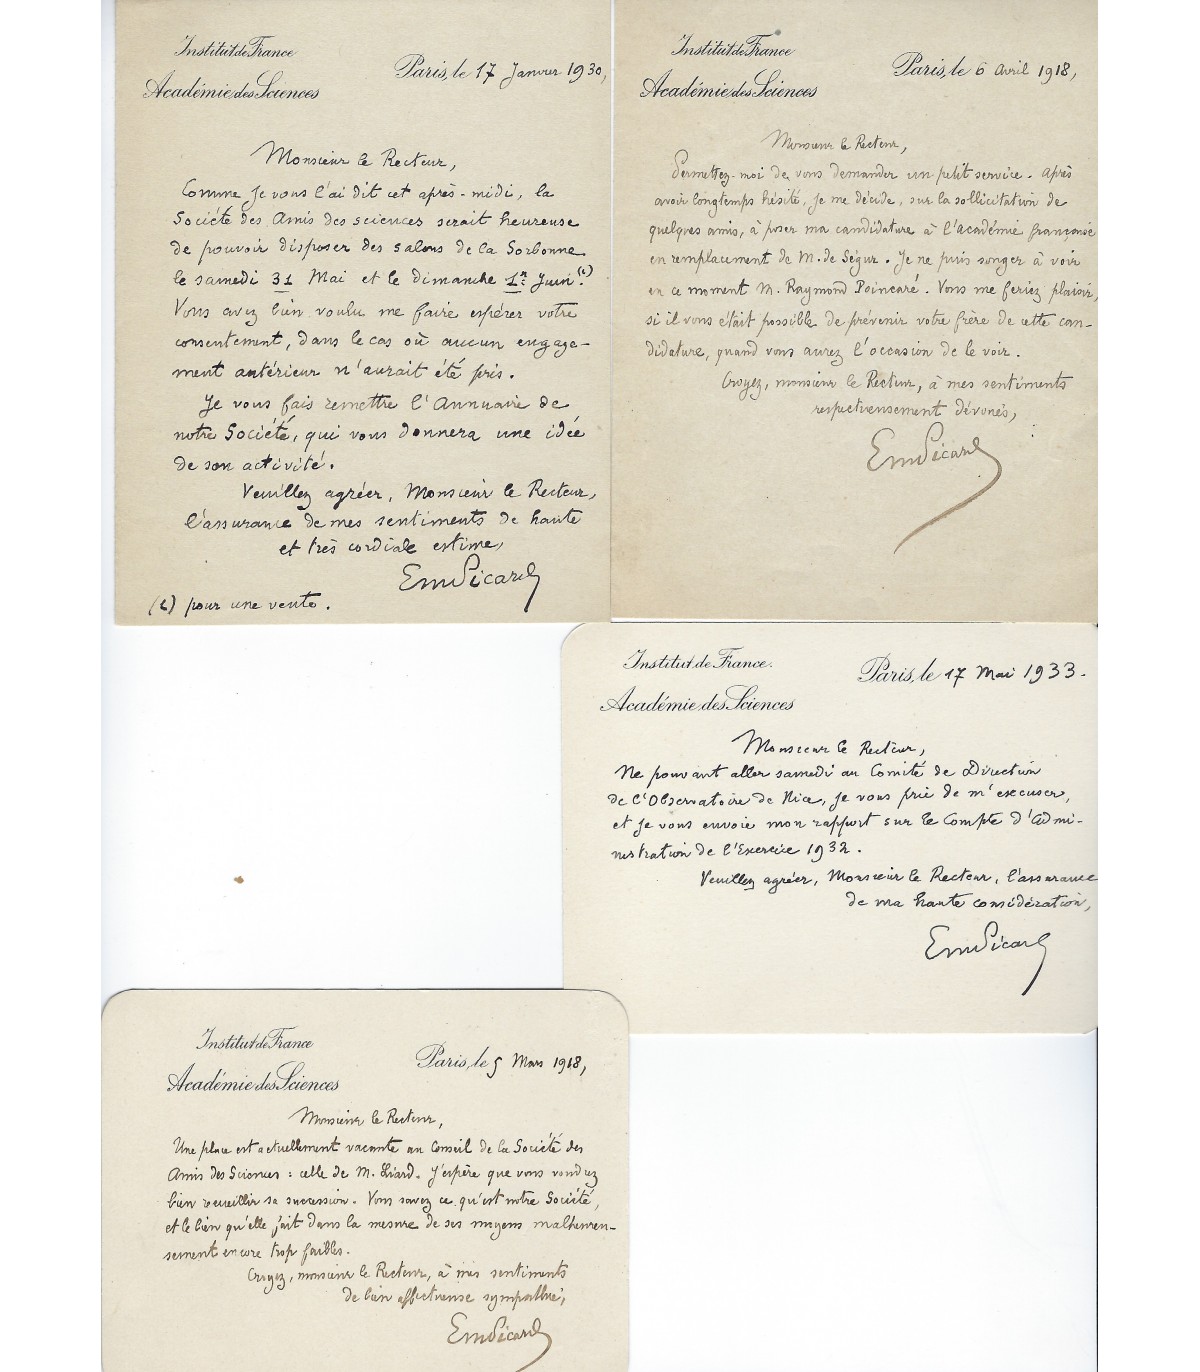 Institut de France
Académie des Sciences
Paris, le 17 Janvier 1930,
Monsieur le Recteur,
Comme je vous l'ai dit cet après-midi, la
Société des Amis des sciences serait heureuse
de pouvoir disposer des salons de la Sorbonne
le samedi 31 Mai et le dimanche 1er Juin (1).
Vous avez bien voulu me faire espérer votre
consentement, dans le cas où aucun engage-
ment antérieur n'aurait été pris.
Je vous fais remettre l'Annuaire de
notre Société, qui vous donnera une idée
de son activité.
Veuillez agréer, Monsieur le Recteur,
l'assurance de mes sentiments de haute
et très cordiale estime,
Em Picard
(1) pour une vente.
Institut de France
Académie des Sciences
Paris, le 6 Avril 1918,
Monsieur le Recteur,
Permettez-moi de vous demander un petit service. Après
avoir longtemps hésité, je me décide, sur la sollicitation de
quelques amis, à poser ma candidature à l'Académie française
en remplacement de M. de Ségur. Je ne puis songer à voir
en ce moment M. Raymond Poincaré. Vous me feriez plaisir,
si il vous était possible de prévenir votre frère de cette can-
didature, quand vous aurez l'occasion de le voir.
Croyez, monsieur le Recteur, à mes sentiments
respectueusement dévoués,
Em Picard
Institut de France.
Académie des Sciences
Paris, le 17 Mai 1933.
Monsieur le Recteur,
Ne pouvant aller samedi au Comité de Direction
de l'Observatoire de Nice, je vous prie de m'excuser,
et je vous envoie mon rapport sur le Compte d'Admi-
nistration de l'Exercice 1932.
Veuillez agréer, Monsieur le Recteur, l'assurance
de ma haute considération,
Em Picard
Institut de France
Académie des Sciences
Paris, le 5 Mars 1918,
Monsieur le Recteur,
Une place est actuellement vacante au Conseil de la Société des
Amis des Sciences : celle de M. Liard. J'espère que vous voudrez
bien recueillir sa succession. Vous savez ce qu'est notre Société,
et le bien qu'elle fait dans la mesure de ses moyens malheureu-
sement encore trop faibles.
Croyez, monsieur le Recteur, à mes sentiments
de bien affectueuse sympathie,
Em Picard